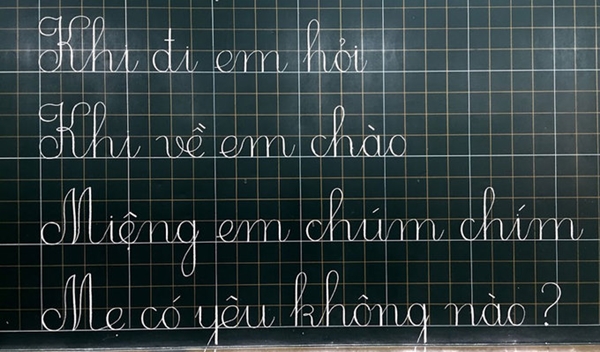 Khi đi em hỏi
Khi về em chào
Miệng em chúm chím
Mẹ có yêu không nào?